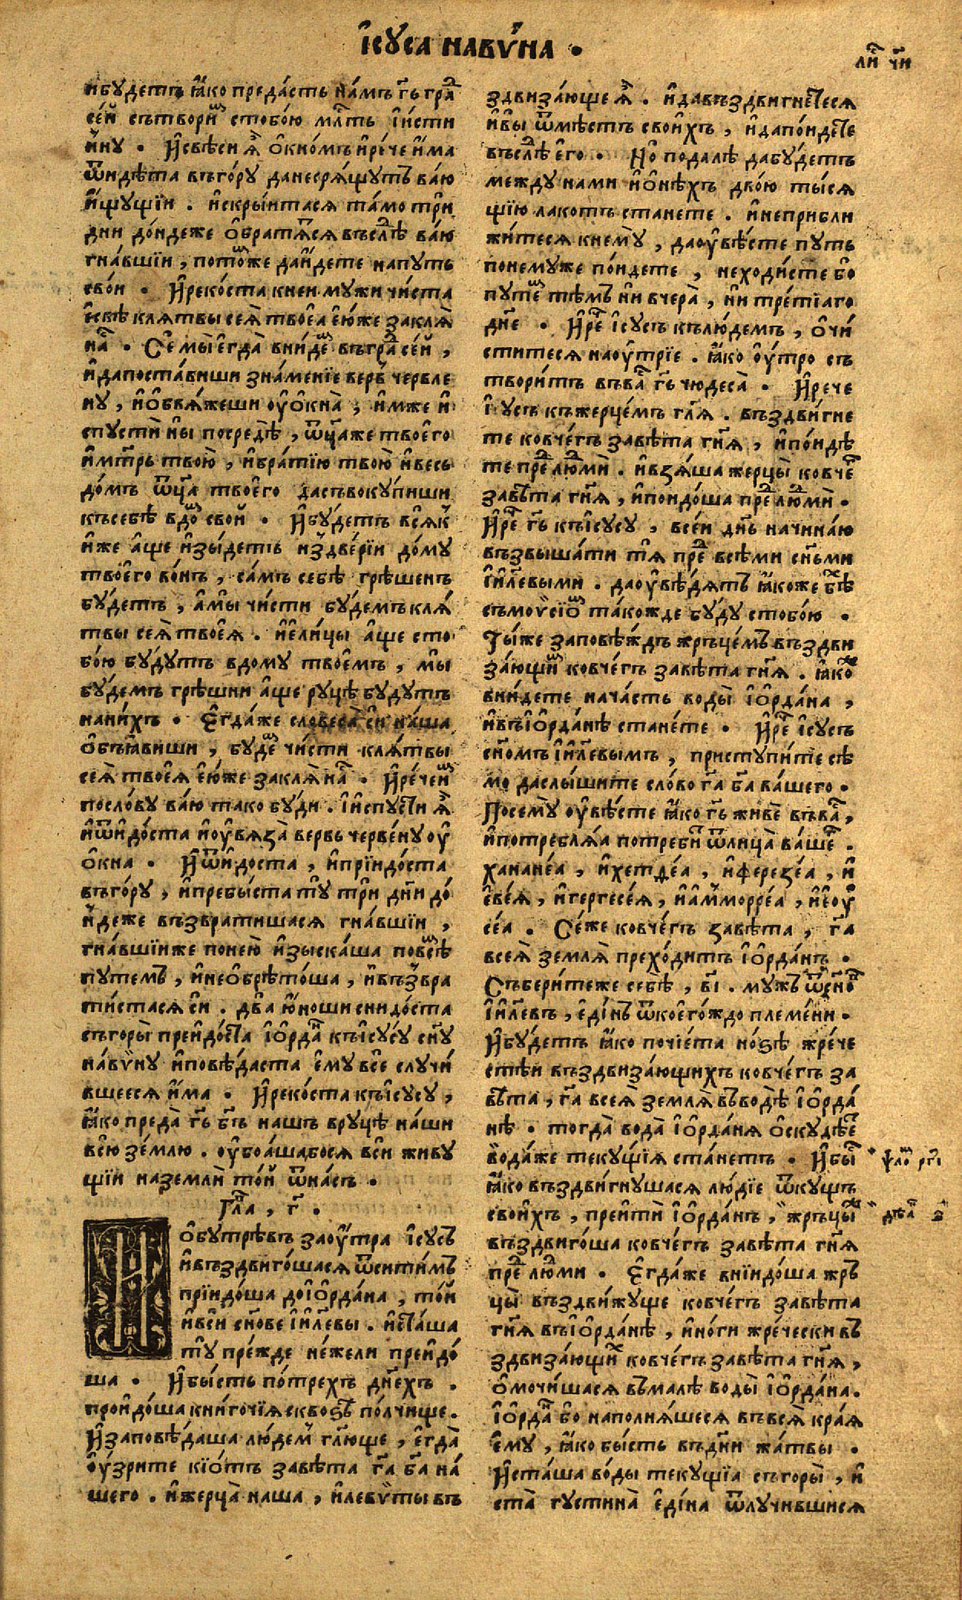 І҆сꙋса навѵ́на .
ли҃ ч҃и
и҆бꙋдетъ ꙗ҆́ко преда́стъ на́мъ г҃ь гра́д
се́й сътвори́ши стобо́ю мл҃ть и҆и҆сти
инꙋ . И҆свѣси ѧ҆̀ ѻ҆кно́мъ и҆рѐче и҆ма
ѿидѣта въго́рꙋ данесрѧ́щꙋтъ ва́ю
и҆́щꙋщїи . и҆скры́итасѧ та́мо три
дни до́ндеже ѻ҆братѧ́тсѧ въслѣ́дъ ва́ю
гна́вшїи , пото́мже дани́дете напꙋть
сво́и . И҆реко́ста кнеи мꙋжи чи́ста
е҆свѣ клѧ́твы сеѧ̀ твоеѧ̀ е҆ю́же заклѧ̀
на̀ . Се́ мы̀ е҆гда̀ вни́демъ въгра́дъ се́й ,
и҆дапоста́виши зна́менїе верв́ь червле
нꙋ , и҆ѻ҆бвѧ́жеши оу҆ѻ҆кна̀ , и҆́мже и҆
спꙋсти́ ны посредѣ̀ , ѿца́же твоего̀
и҆мт҃рь твою̀ , и҆бра́тїю твою̀ и҆весь
до́мъ ѿца̀ твоего̀ дасъвокꙋ́пиши
къ себѣ̀ вдо́мъ сво́й . И҆бꙋ́детъ всѧ́къ
и҆́же а҆́ще и҆зы́детъ и҆здве́рїи до́мꙋ
твоего̀ во́нъ , са́мъ себѣ̀ грѣ́шенъ
бꙋ́детъ , а҆мы̀ чи́сти бꙋ́демъ клѧ́
твы сеѧ̀ твоеѧ̀ . и҆ели́цы а҆́ще сто
бо́ю бꙋ́дꙋтъ вдомꙋ̀ твое́мъ , мы̀
бꙋ́демъ грѣ́шни а҆́ще рꙋцѣ̀ бꙋ́дꙋтъ
нани́хъ . Е҆гда́же словеса̀ сїи на́ша
ѻ҆бъꙗ́виши , бꙋ́демъ чи́сти клѧ́твы
сеѧ̀ твоеѧ̀ е҆ю́же заклѧ̀ на̀ . И҆рече́ и҆мъ
посло́вꙋ ва́ю та́ко бꙋ́ди . и҆и҆спꙋсти ѧ҆̀
и҆ѿидо́ста и҆оу҆вѧза̀ вервь черве́нꙋ оу҆
ѻ҆кна . И҆ѿидо́ста , и҆прїидо́ста
въго́рꙋ , и҆пребы́ста тꙋ̀ три дн҃и до́
и҆́деже възврати́шасѧ гна́вшїи ,
гна́вшїиже понею̀ и҆зыска́ша повсѣ́мъ
пꙋте́мъ , и҆неѻ҆брѣто́ша , и҆възвра
ти́стасѧ си . два ю҆́ноши снидо́ста
съгоры̀ преидо́ста і҆ѻ҆рда́нъ къі҆сꙋ́сꙋ сн҃ꙋ
на́вѵнꙋ и҆повѣ́даста е҆мꙋ̀ всѐ слꙋчи́
вшеесѧ и҆́ма . И҆реко́ста къі҆сꙋ́сꙋ ,
ꙗ҆́ко преда̀ г҃ь бг҃ъ на́шъ врꙋцѣ̀ на́ши
всю̀ зе́млю . оу҆боѧ́шабосѧ вси живꙋ
щїи наземлѝ то́й ѿна́съ .
Гла́ , г҃ .
И ѻбꙋ́трѣвъ заоу҆́тра і҆сꙋ́съ
и҆въздвиго́шасѧ ѿситимъ
прїидо́ша доі҆ѻ҆рда́на , то́й
и҆вси сн҃ове і҆и҃левы . и҆ста́ша
тꙋ̀ пре́жде не́жели преидо́
ша . И҆бы́сть по трехъ дн҃е́хъ .
проидо́ша книго́чїѧ сквозѣ̀ по́лчище .
И҆заповѣ́даша лю́демъ гл҃юще , е҆гда̀
оу҆́зрите кїо́тъ завѣ́та г҃а б҃а на́
шего . и҆жерца̀ на́ша , и҆леви́ты въ
здвиза́юще ѧ҆̀ . и҆давъздви́гнетесѧ
и҆вы̀ ѿмѣ́стъ свои́хъ , и҆дапои́дете
въслѣ́дъ е҆го . Но̀ подалѣ̀ дабꙋ́детъ
междꙋ на́ми и҆ѻ҆нѣ́хъ двою̀ ты́сѧ
щїю ла́котъ ста́нете . и҆неприбли
жи́тесѧ кнемꙋ̀ , даоу҆вѣ́сте пꙋть
понемꙋже по́идете , не́ходи́сте бо
пꙋте́мъ тѣ́мъ ни вчера̀ , ни тре́тїаго
дн҃е . И҆рече́ і҆сꙋ́съ къ лю́демъ , ѻ҆чи́
ститесѧ наоу҆́трїе . ꙗ҆́ко оу҆́тро съ
твори́тъ въва́съ г҃ь чюдеса̀ . И҆рече
і҆сꙋсъ къжерце́мъ гл҃ѧ . въздви́гне
те ковче́гъ завѣ́та гн҃ѧ , и҆по́идѣ
те пре́д людмѝ . и҆взѧ́ша жерцы̀ ковче́г
завѣ́та гн҃ѧ , и҆поидо́ша пре́д людмѝ .
И҆рече́ г҃ь къі҆сꙋ́сꙋ , все́и дн҃ь начина́ю
възвыша́ти тѧ̀ пре́д всѣ́ми сн҃ъми
і҆и҃левыми . даоу҆вѣ́дѧтъ ꙗ҆́коже бѣ́хъ
съмоѵ҆се́омъ та́кожде бꙋ́дꙋ стобо́ю .
Ты́же заповѣ́ждь жръце́мъ въздви
за́ющимъ ковче́гъ завѣ́та гн҃ѧ . ꙗ҆́коже
вни́дете нача́сть воды̀ і҆ѻ҆рда́на ,
и҆въі҆ѻ҆рда́нѣ ста́нете . И҆рече́ і҆сꙋ́съ
сн҃омъ і҆и҃левымъ , пристꙋпи́те сѣ̀
мо даслы́шите сло́во г҃а б҃а ва́шего .
Посемꙋ̀ оу҆вѣ́сте ꙗ҆́ко г҃ь жи́въ въва́съ ,
и҆потреблѧ́а потреби́тъ ѿлица̀ ва́шего .
ханане́а , и҆хетѳе́а , и҆ферезе́а , и҆
е҆ве́ѧ , и҆гергесе́ѧ , и҆а҆мморре́а , и҆і҆еоу҆
се́а . Се́же ковче́гъ завѣ́та , г҃а
всеѧ̀ землѧ̀ прехо́дитъ і҆ѻ҆рда́нъ .
Събери́теже себѣ̀ , в҃і . мꙋ́жъ ѿсн҃овъ
і҆и҃левъ , е҆ди́нъ ѿкоего́ждо племе́ни .
И҆бꙋ́детъ ꙗ҆́ко почі́ета но́зѣ жре́че
стѣ́и въздвиза́ющихъ ковче́гъ за
вѣ́та , г҃а всеѧ̀ землѧ̀ въводѣ̀ і҆ѻ҆рда́
нѣ . тогда̀ вода̀ і҆ѻ҆рда́нѧ ѻ҆скꙋдѣ́етъ
вода́же текꙋ́щїѧ ста́нетъ . И҆бы́сть
ꙗ҆́ко въздвигнꙋшасѧ лю́дїе ѿкꙋщъ
свои́хъ , преитѝ і҆ѻ҆рда́нъ , жръцы̀
въздвиго́ша ковче́гъ завѣ́та гн҃ѧ
пре́д людми . Е҆гда́же внїидо́ша жръ
цы̀ въздви́жꙋще ковче́гъ завѣ́та
гн҃ѧ въі҆ѻ҆рда́нѣ , и҆но́ги жре́чески въ
здвиза́ющихъ ковче́гъ завѣ́та гн҃ѧ ,
ѻ҆мочи́шасѧ въма́лѣ воды̀ і҆ѻ҆рда́на .
І҆ѻ҆рда́нъ бо напо́лнѧшесѧ въвсѧ̀ кра́ѧ
е҆мꙋ , ꙗ҆́ко бы́сть въдн҃и жа́твы .
И҆ста́ша во́ды текꙋ́щїа съгоры̀ , и҆
ста̀ гꙋстина̀ е҆ди́на ѿлꙋчи́вшисѧ
ѱало́м рг҃і
дѣѧ́ з҃